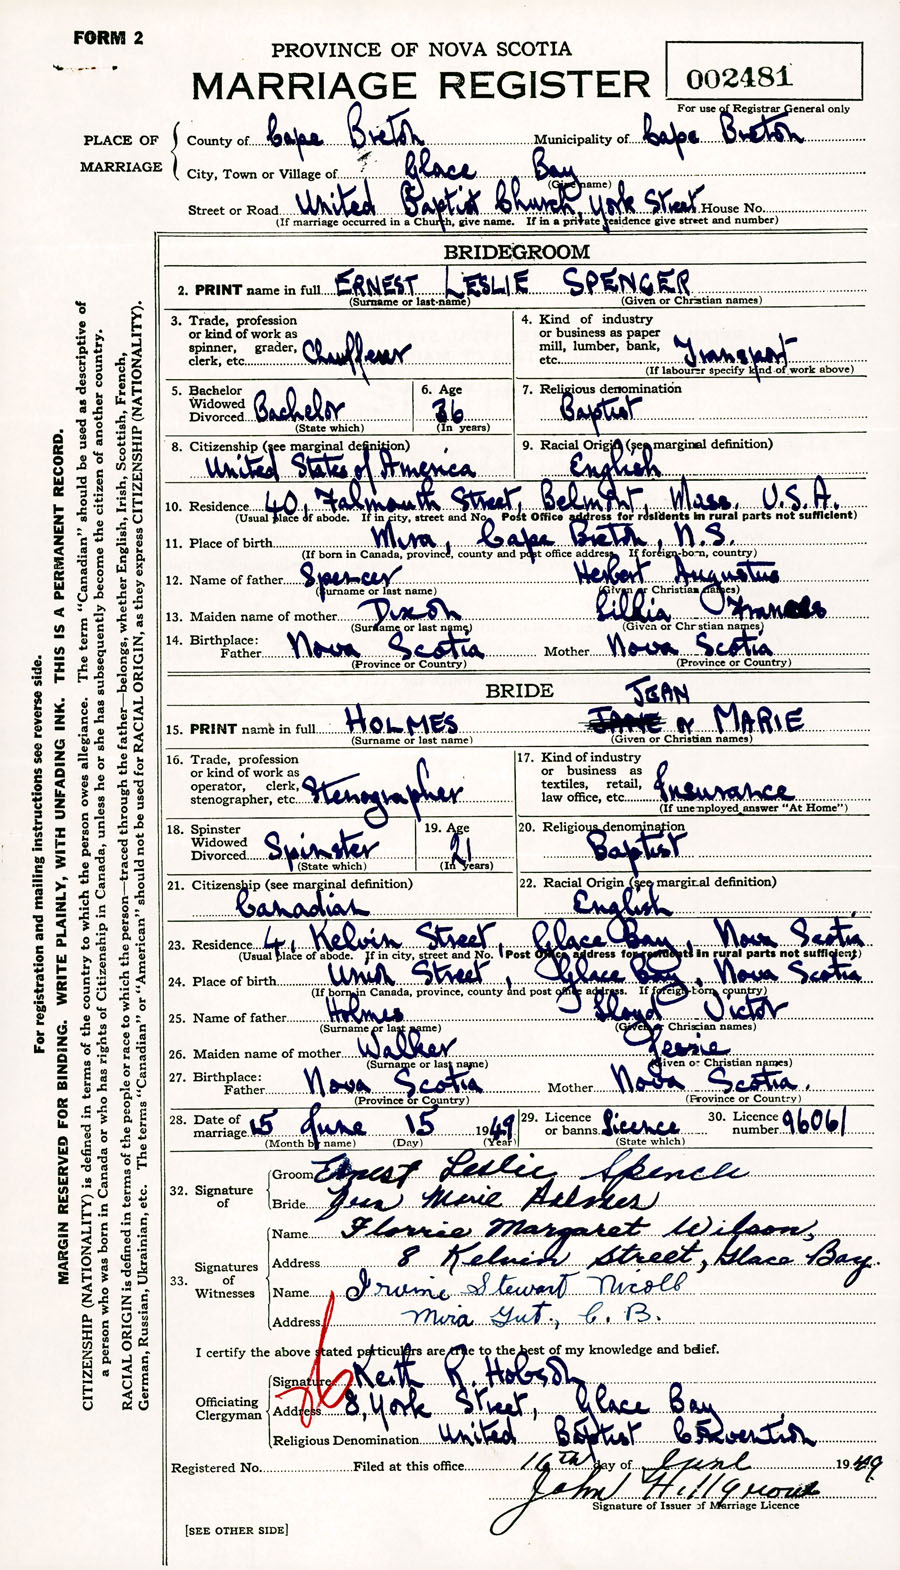 FORM 2
PROVINCE OF NOVA SCOTIA
MARRIAGE REGISTER
002481
For use of Registrar General only
PLACE OF MARRIAGE
County of Cape Breton Municipality of Cape Breton
City, Town or Village of Glace Bay
(Give name)
Street or Road United Baptist Church York Street House No.
(If marriage occurred in a Church, give name. If in a private residence give street and number)
BRIDEGROOM
2. PRINT name in full ERNEST LESLIE SPENCER
(Surname or last name) (Given or Christian names)
3. Trade, profession or kind of work as spinner, grader, clerk, etc. Chauffeur
4. Kind of industry or business as paper mill, lumber, bank, etc. Transport
(If labourer specify kind of work above)
5. Bachelor Widowed Divorced Bachelor
(State which)
6. Age 36
(In years)
7. Religious denomination
Baptist
8. Citizenship (see marginal definition)
United States of America
9. Racial Origin (see marginal definition)
English
10. Residence 40, Falmouth Street, Belmont, Mass. U.S.A.
(Usual place of abode. If in city, street and No. Post Office address for residents in rural parts not sufficient)
11. Place of birth Mira, Cape Breton, N.S.
(If born in Canada, province, county and post office address. If foreign-born, country)
12. Name of father Spencer Herbert Augustus
(Surname or last name) (Given or Christian names)
13. Maiden name of mother Dixon Lillia Frances
(Surname or last name) (Given or Christian names)
14. Birthplace: Father Nova Scotia Mother Nova Scotia
(Province or Country) (Province or Country)
BRIDE
JEAN
15. PRINT name in full HOLMES JANE or MARIE
(Surname or last name) (Given or Christian names)
16. Trade, profession or kind of work as operator, clerk, stenographer, etc. Stenographer
17. Kind of industry or business as textiles, retail, law office, etc. Insurance
(If unemployed answer "At Home")
18. Spinster Widowed Divorced Spinster
(State which)
19. Age 21
(In years)
20. Religious denomination
Baptist
21. Citizenship (see marginal definition)
Canadian
22. Racial Origin (see marginal definition)
English
23. Residence 4, Kelvin Street, Glace Bay, Nova Scotia
(Usual place of abode. If in city, street and No. Post Office address for residents in rural parts not sufficient)
24. Place of birth Union Street, Glace Bay, Nova Scotia
(If born in Canada, province, county and post office address. If foreign-born, country)
25. Name of father Holmes Lloyd Victor
(Surname or last name) (Given or Christian names)
26. Maiden name of mother Walker Jessie
(Surname or last name) (Given or Christian names)
27. Birthplace: Father Nova Scotia Mother Nova Scotia.
(Province or Country) (Province or Country)
28. Date of marriage 15 June 15 1949
(Month by name) (Day) (Year)
29. Licence or banns Licence
(State which)
30. Licence number 96061
32. Signature of
Groom Ernest Leslie Spencer
Bride Jean Marie Holmes
33. Signatures of Witnesses
Name Florrie Margaret Wilson,
Address 8 Kelvin Street, Glace Bay.
Name Irvine Stewart Nicoll
Address Mira Gut., C. B.
I certify the above stated particulars are true to the best of my knowledge and belief.
Officiating Clergyman
Signature Keith R. Hobson
Address 8, York Street, Glace Bay
Religious Denomination United Baptist Convention
Registered No. Filed at this office 16th day of June 1949
John Hillgrove
Signature of Issuer of Marriage Licence
[SEE OTHER SIDE]
For registration and mailing instructions see reverse side.
MARGIN RESERVED FOR BINDING. WRITE PLAINLY, WITH UNFADING INK. THIS IS A PERMANENT RECORD.
CITIZENSHIP (NATIONALITY) is defined in terms of the country to which the person owes allegiance. The term "Canadian" should be used as descriptive of
a person who was born in Canada or who has rights of Citizenship in Canada, unless he or she has subsequently become the citizen of another country.
RACIAL ORIGIN is defined in terms of the people or race to which the person—traced through the father—belongs, whether English, Irish, Scottish, French,
German, Russian, Ukrainian, etc. The terms "Canadian" or "American" should not be used for RACIAL ORIGIN, as they express CITIZENSHIP (NATIONALITY).